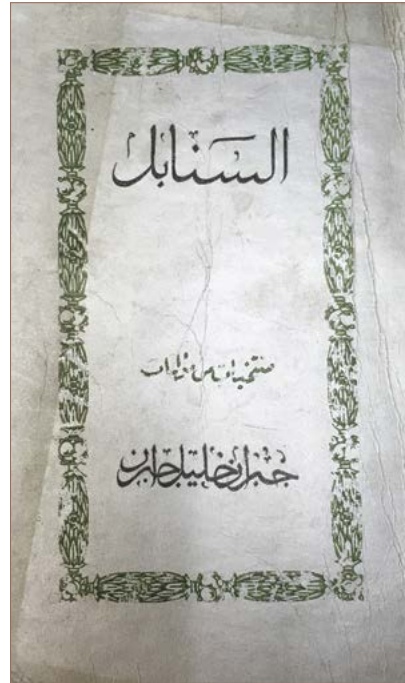 السنابل
منتخبات من مؤلفات
جبران خليل جبران